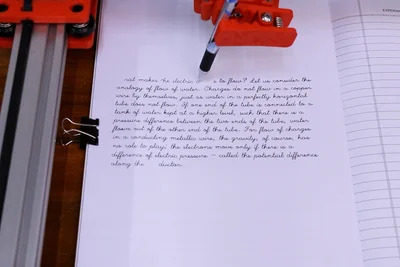 makes the electric to flow? Let us consider the
analogy of flow of water. Charges do not flow in a copper
wire by themselves, just as water in a perfectly horizontal
tube does not flow. If one end of the tube is connected to a
tank of water kept at a higher level, such that there is a
pressure difference between the two ends of the tube, water
flows out of the other end of the tube. For flow of charges
in a conducting metallic wire, the gravity, of course, has
no role to play; the electrons move only if there is a
difference of electric pressure – called the potential difference –
along the ductor.